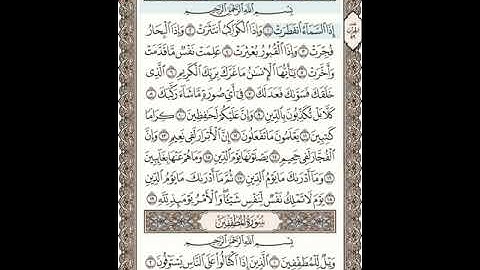 بِسْمِ اللَّهِ الرَّحْمَٰنِ الرَّحِيمِ
إِذَا السَّمَاءُ انفَطَرَتْ ١ وَإِذَا الْكَوَاكِبُ انتَثَرَتْ ٢ وَإِذَا الْبِحَارُ
فُجِّرَتْ ٣ وَإِذَا الْقُبُورُ بُعْثِرَتْ ٤ عَلِمَتْ نَفْسٌ مَّا قَدَّمَتْ
وَأَخَّرَتْ ٥ يَٰٓأَيُّهَا الْإِنسَٰنُ مَا غَرَّكَ بِرَبِّكَ الْكَرِيمِ ٦ الَّذِي
خَلَقَكَ فَسَوَّىٰكَ فَعَدَلَكَ ٧ فِي أَيِّ صُورَةٍ مَّا شَاءَ رَكَّبَكَ ٨
كَلَّا بَلْ تُكَذِّبُونَ بِالدِّينِ ٩ وَإِنَّ عَلَيْكُمْ لَحَٰفِظِينَ ١٠ كِرَامًا
كَٰتِبِينَ ١١ يَعْلَمُونَ مَا تَفْعَلُونَ ١٢ إِنَّ الْأَبْرَارَ لَفِي نَعِيمٍ ١٣ وَإِنَّ
الْفُجَّارَ لَفِي جَحِيمٍ ١٤ يَصْلَوْنَهَا يَوْمَ الدِّينِ ١٥ وَمَا هُمْ عَنْهَا بِغَائِبِينَ
١٦ وَمَا أَدْرَىٰكَ مَا يَوْمُ الدِّينِ ١٧ ثُمَّ مَا أَدْرَىٰكَ مَا يَوْمُ الدِّينِ
١٨ يَوْمَ لَا تَمْلِكُ نَفْسٌ لِّنَفْسٍ شَيْئًا وَالْأَمْرُ يَوْمَئِذٍ لِّلَّهِ ١٩
سُورَةُ الْمُطَفِّفِينَ
بِسْمِ اللَّهِ الرَّحْمَٰنِ الرَّحِيمِ
وَيْلٌ لِّلْمُطَفِّفِينَ ١ الَّذِينَ إِذَا اكْتَالُوا عَلَى النَّاسِ يَسْتَوْفُونَ ٢